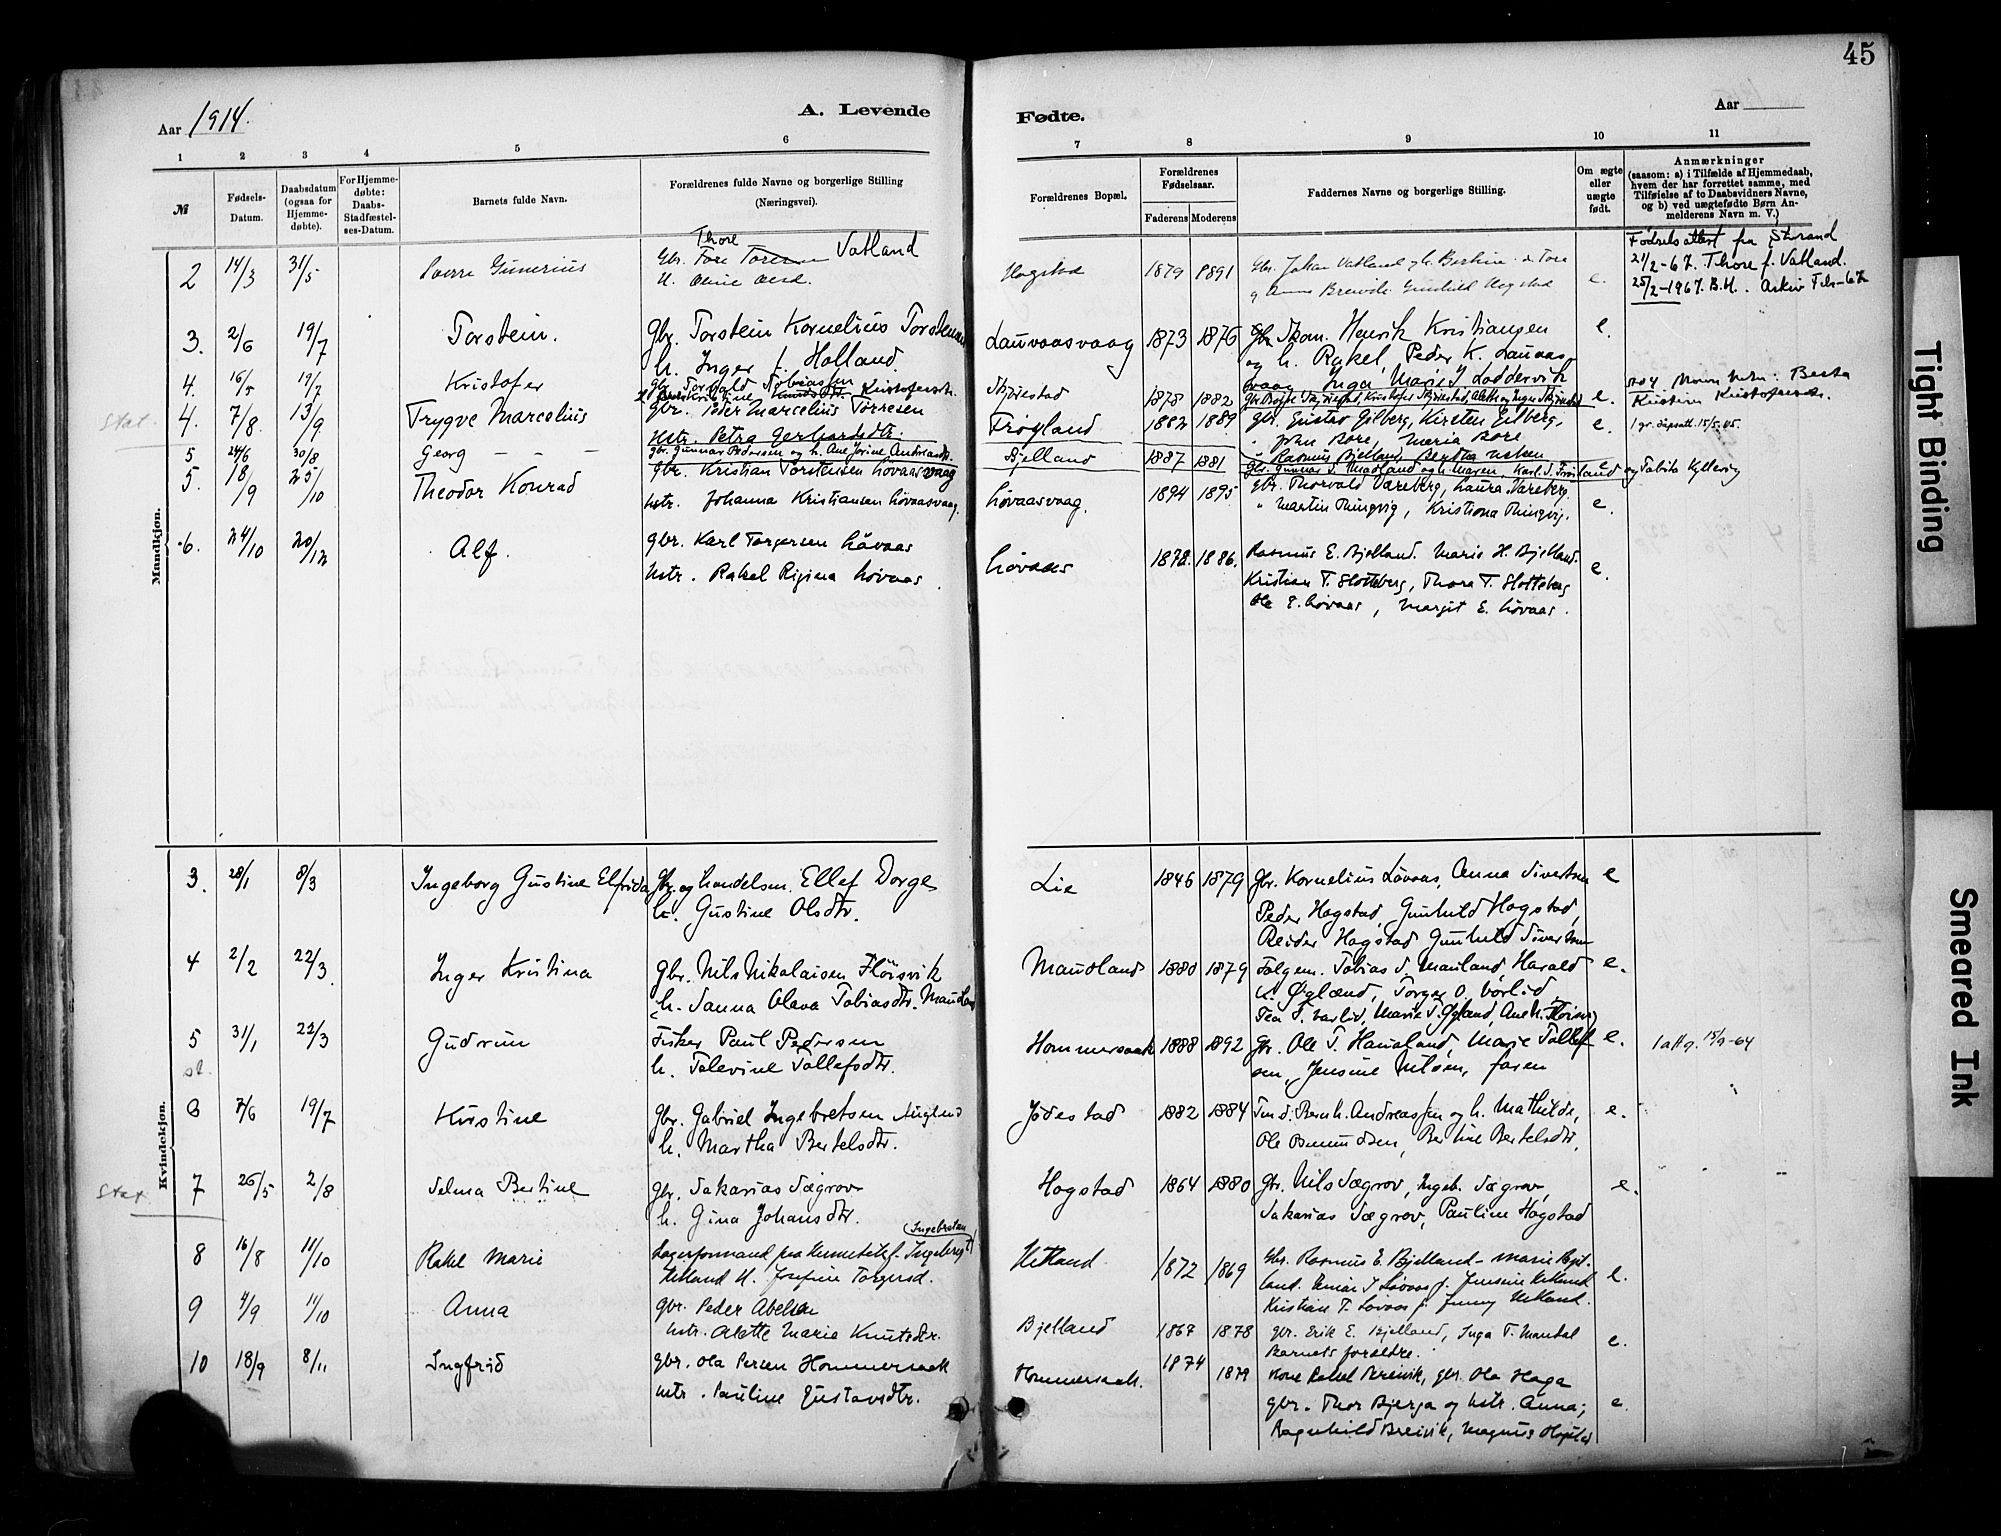 45
Aar 1914.
A. Levende
Fødte.
Aar
1 2 3 4 5 6 7 8 9 10 11
№
Fødsels-
Datum.
Daabsdatum
(ogsaa for
Hjemme-
døbte).
For Hjemme-
døbte:
Daabs-
Stadfæstel-
ses-Datum.
Barnets fulde Navn.
Forældrenes fulde Navne og borgerlige Stilling
(Næringsvei).
Forældrenes Bopæl.
Forældrenes
Fødselsaar.
Faderens Moderens
Faddernes Navne og borgerlige Stilling.
Om ægte
eller
uægte
født.
Anmærkninger
(saasom: a) i Tilfælde af Hjemmedaab,
hvem der har forrettet samme, med
Tilføielse af to Daabsvidners Navne,
og b) ved uægtefødte Børn An-
melderens Navn m. V.)
Mandkjøn.
2 14/3 31/5 Sverre Gunerius Gbr. Thore Vatland
Hogstad 1879 1891 Gbr. Johan Vatland
e.
Fødselsattest fra Strand
21/2-67. Thore f. Vatland.
25/2-1967. B.H. Arkiv Febr-67
3. 2/6 19/7 Torstein. Gbr. Torstein Kornelius Torstensen
h. Inger f. Holland
Lauvaasvaag 1873 1876 Henrik Kristiansen e.
og h. Rakel, Peder K. Lauvaas
vaag Inga Marie T Loddervik
4. 16/5 19/7 Kristofer gbr. Torvald Tobiassen
Skjørestad 1878 1882 e.
Stat. 4. 7/8 13/9 Trygve Marcelius Gbr. Peder Marcelius Tørresen
Hstr. Petra Gerhardsdtr.
Frøyland 1882 1889 gbr. Gustav Eilberg, Kirsten Eilberg, e. 1 gr. dåpsatt. 15/5.45.
" John Bore, Maria Bore
5 24/6 30/8 Georg gbr. Gunnar Pedersen og h. Ane Jorine Andreasdtr.
Bjelland 1887 1881 Rasmus Bjelland, Bertha
5. 18/9 25/10 Theodor Konrad gbr. Kristian Torstensen Løvaasvaag
hstr. Johanna Kristiansen Løvaasvaag.
Løvaasvaag. 1894 1895 gbr. Thorvald Vareberg, Laura Vareberg. e.
" Martin Thingvig, Kristiana Thingvig.
6. 24/10 20/12 Alf. gbr. Karl Torgersen Løvaas
hstr. Rakel Rigina Løvaas
Løvaas 1878. 1886. Rasmus E. Bjelland. Marie H. Bjelland. e.
Kristian T. Slotteberg, Thora T. Slotteberg
Ole E. Løvaas, Margit E. Løvaas.
Kvindekjøn.
3. 28/1 8/3 Ingeborg Gustine Elfrida Gbr. og handelsm. Ellef Dorge
h. Gustine Olsdtr.
Lie 1846 1879 Gbr. Kornelius Løvaas, Anna Sivertsen e
Peder Hogstad, Gunhild Hogstad,
Reider Hogstad Gunhild Sivertsen
4 2/2 22/3. Inger Kristina Gbr. Nils Nikolaisen Fløisvik
h. Sanna Olava Tobiasdtr. Maudland
Maudland 1880 1879 Følgem. Tobias S. Mauland, Harald e.
N. Øgland, Torger O. Vorlid,
Tea T. Varlid, Marie T. Øgland, Ane H. Fløisvig
5 31/1 22/3 Gudrun Fisker Paul Pedersen
st. h. Talevine Tollefsdtr.
Hommersaak 1888 1892 Gbr. Ole T. Hanaland, Marie Tollef- e. 1 att g. 15/9-64
sen, Jensine Nilsen, faren
6 7/6 19/7 Kristine Gbr. Gabriel Ingebretsen Auglend
h. Martha Bertelsdtr.
Jødestad 1882 1884 Smd. Bernh. Andreassen og h. Mathilde, e.
Ole Osmundsen, Bertine Bertelsdtr.
Stat. 7 26/5 2/8 Selma Bertine Gbr. Sakarias Sægrov
h. Gina Johansdtr.
Hogstad 1864 1880 Gbr. Nils Sægrov, Ingeb. Sægrov, e.
Sakarias Sægrov, Pauline Hogstad
8 16/8 11/10 Rakel Marie Lagerformand paa Hermetikf. Ingebrigt (Ingebretsen)
Hetland H. Josefine Torgersd.
Hetland 1872 1869 Gbr. Rasmus E. Bjelland - Marie Bjel- e.
land. Løvaas f. Jensine Hetland.
Kristian T. Løvaas f. Jenny Hetland.
9 4/9 11/10 Anna gbr. Peder Abelsen
hstr. Alette Marie Knutsdtr.
Bjelland 1867 1878 gbr. Erik E. Bjelland, Inga T. Mandal e.
Barnets foreldre.
10 18/9 8/11 Ingfrid gbr. Ola Persen Hommersaak
hstr. Pauline Gustavsdtr.
Hommersaak. 1874 1879 Kone Rakel Breivik, gbr. Ola Haga
gbr. Thor Bjerga og hstr. Anna; e.
Ragnhild Breivik, Magnus Hogstad
Tight Binding
Smeared Ink